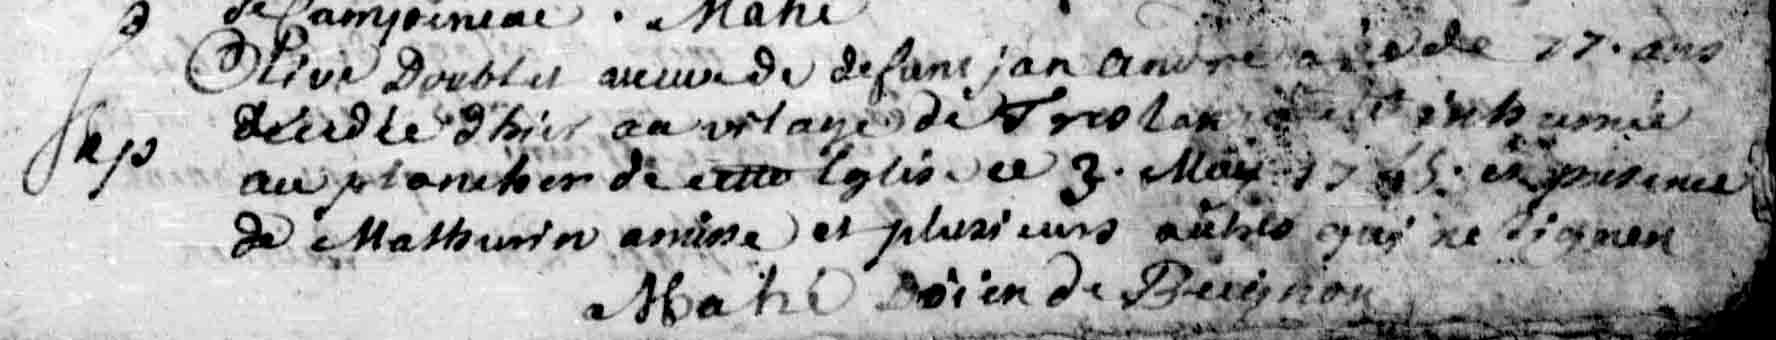 de Campeneac . Mahé
Olive Doublet veuve de defunt jan andre agée de 77. ans
décedée d'hier au vilage de Treslan a été inhumée
au plancher de cette Eglise ce 3. May 17 5. en presence
de Mathurin anisse et plusieurs autres qui ne signent
Mahé Doien de Beignon
Sep